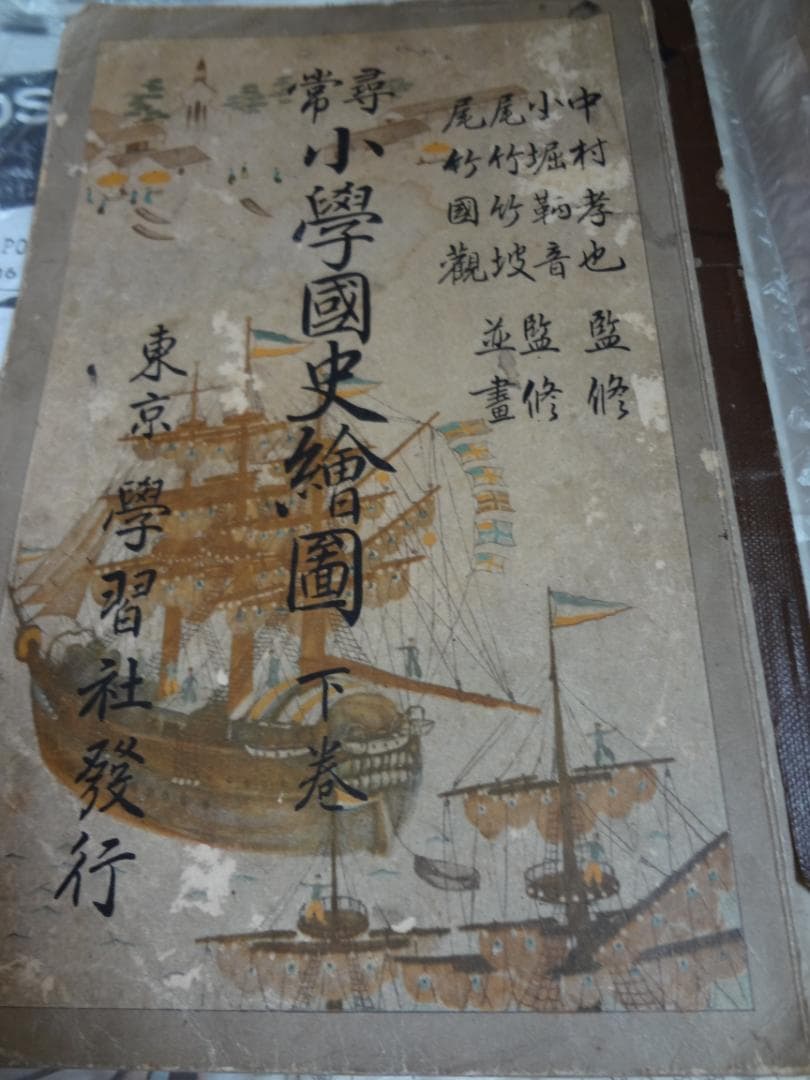 中村孝也 監修
小堀鞆音 監修
尾竹竹坡 並畫
尾竹國觀
尋常
小學國史繪圖 下卷
東京 學習社發行